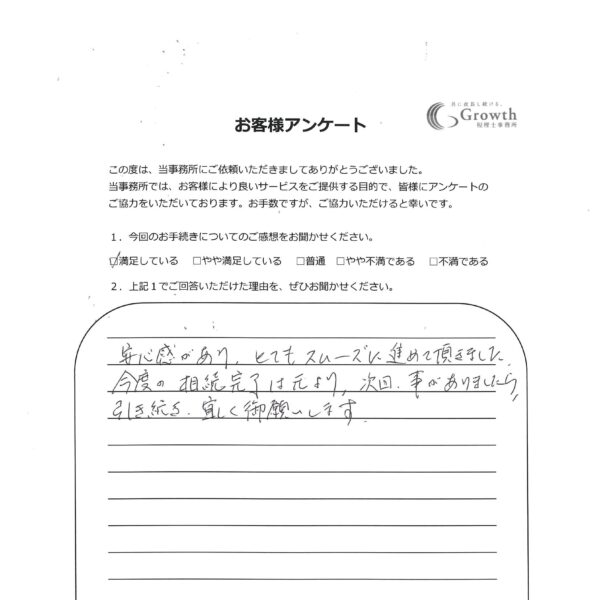 共に成長し続ける。
Growth
税理士事務所
お客様アンケート
この度は、当事務所にご依頼いただきましてありがとうございました。
当事務所では、お客様により良いサービスをご提供する目的で、皆様にアンケートの
ご協力をいただいております。お手数ですが、ご協力いただけると幸いです。
1．今回のお手続きについてのご感想をお聞かせください。
☑満足している □やや満足している □普通 □やや不満である □不満である
2．上記1でご回答いただけた理由を、ぜひお聞かせください。
安心感があり、とてもスムーズに進めて頂きました。
今度の相続完了は元より、次回、事がありましたら、
引き続き、宜しく御願いします